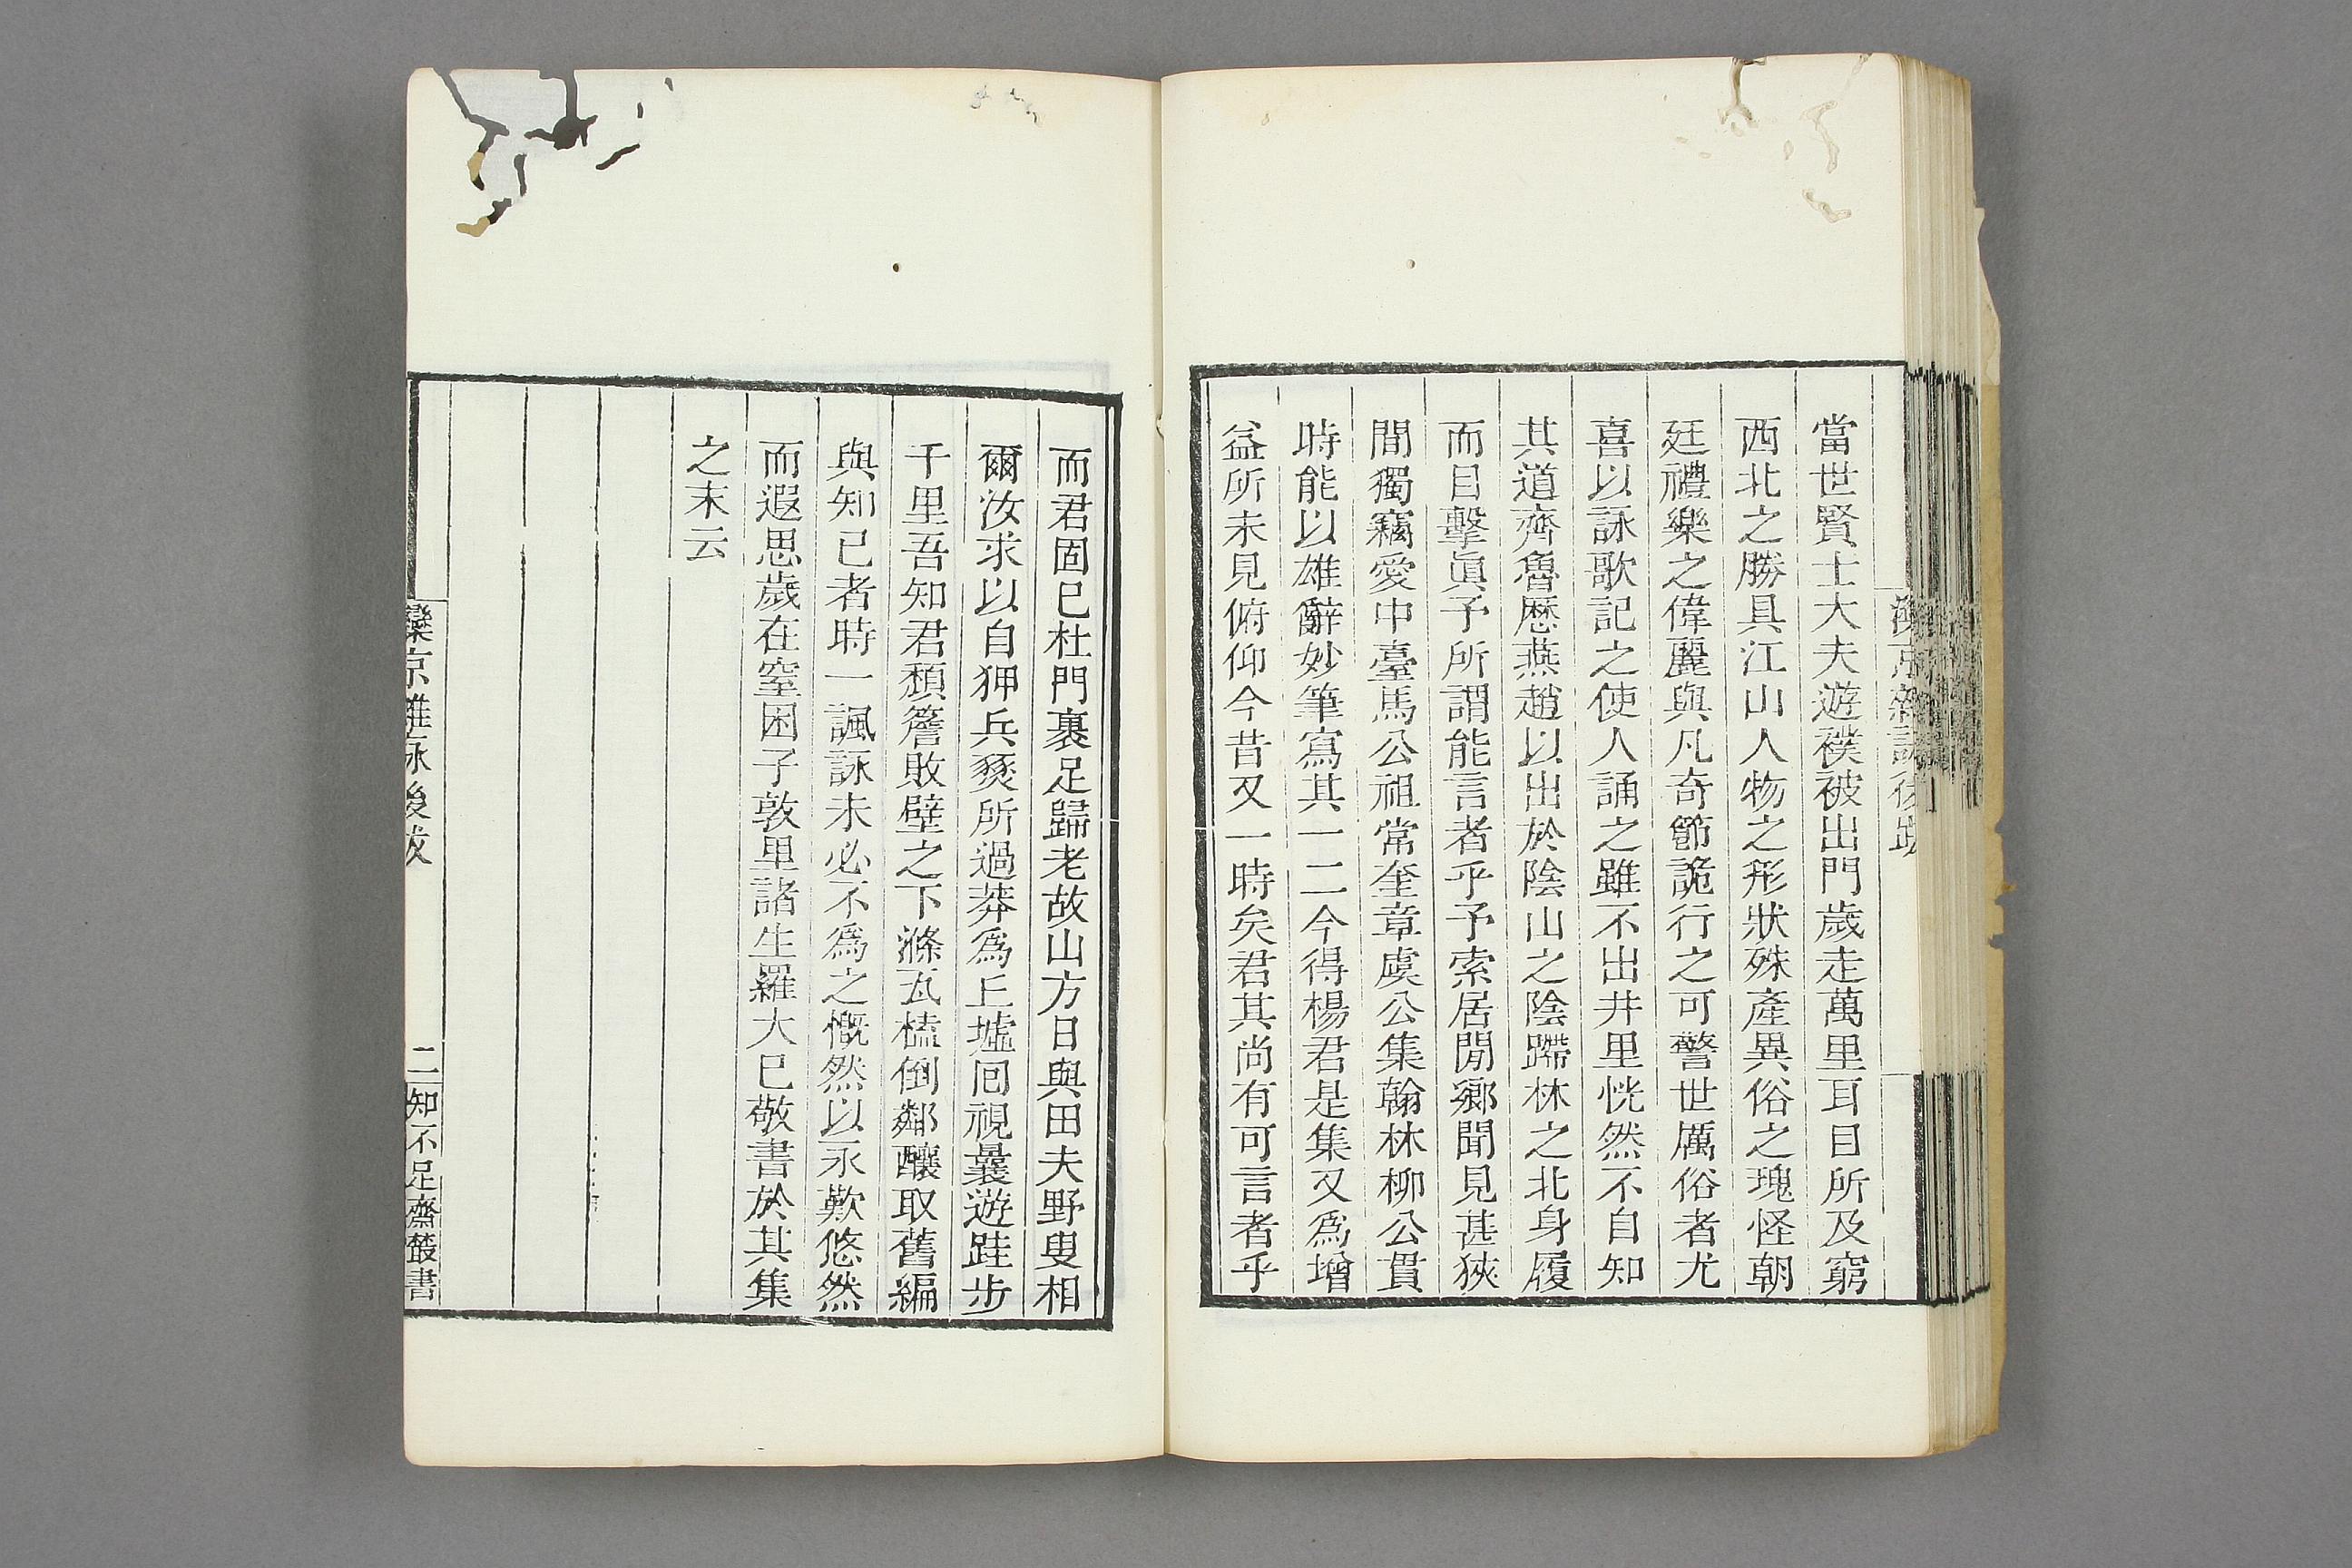 當世賢士大夫遊襆被出門歲走萬里耳目所及窮
西北之勝具江山人物之形狀殊產異俗之瑰怪朝
廷禮樂之偉麗與凡奇節詭行之可警世厲俗者尤
喜以詠歌記之使人誦之雖不出井里恍然不自知
其道齊魯歷燕趙以出於陰山之陰蹛林之北身履
而目擊眞予所謂能言者乎予索居閒鄉聞見甚狹
間獨竊愛中臺馬公祖常奎章虞公集翰林柳公貫
時能以雄辭妙筆寫其一二今得楊君是集又爲增
益所未見俯仰今昔又一時矣君其尚有可言者乎
而君固已杜門裹足歸老故山方日與田夫野叟相
爾汝求以自狎兵燹所過莽爲丘墟回視曩遊跬步
千里吾知君頹簷敗壁之下滌瓦榼倒鄰釀取舊編
與知己者時一諷詠未必不爲之慨然以永歎悠然
而遐思歲在窒困子敦里諸生羅大巳敬書於其集
之末云
灤京雜詠後跋
二
知不足齋叢書